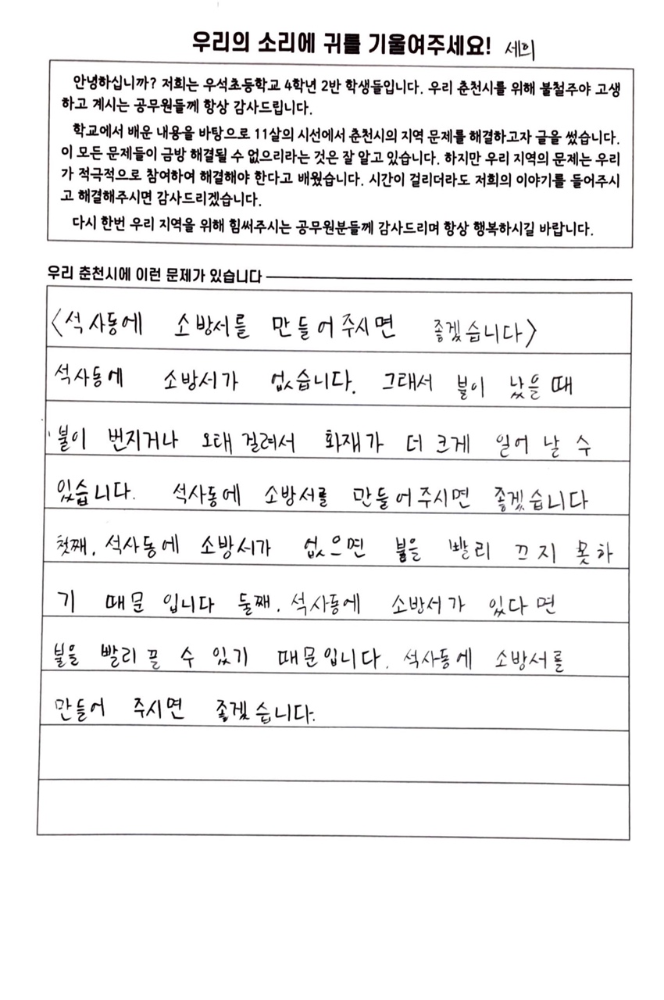 우리의 소리에 귀를 기울여주세요! 세희
안녕하십니까? 저희는 우석초등학교 4학년 2반 학생들입니다. 우리 춘천시를 위해 불철주야 고생
하고 계시는 공무원들께 항상 감사드립니다.
학교에서 배운 내용을 바탕으로 11살의 시선에서 춘천시의 지역 문제를 해결하고자 글을 썼습니다.
이 모든 문제들이 금방 해결될 수 없으리라는 것은 잘 알고 있습니다. 하지만 우리 지역의 문제는 우리
가 적극적으로 참여하여 해결해야 한다고 배웠습니다. 시간이 걸리더라도 저희의 이야기를 들어주시
고 해결해주시면 감사드리겠습니다.
다시 한번 우리 지역을 위해 힘써주시는 공무원분들께 감사드리며 항상 행복하시길 바랍니다.
우리 춘천시에 이런 문제가 있습니다
<석사동에 소방서를 만들어주시면 좋겠습니다>
석사동에 소방서가 없습니다. 그래서 불이 났을 때
불이 번지거나 오래 걸려서 화재가 더 크게 일어 날 수
있습니다. 석사동에 소방서를 만들어주시면 좋겠습니다
첫째, 석사동에 소방서가 없으면 불을 빨리 끄지 못하
기 때문 입니다 둘째, 석사동에 소방서가 있다면
불을 빨리 끌 수 있기 때문입니다. 석사동에 소방서를
만들어 주시면 좋겠습니다.